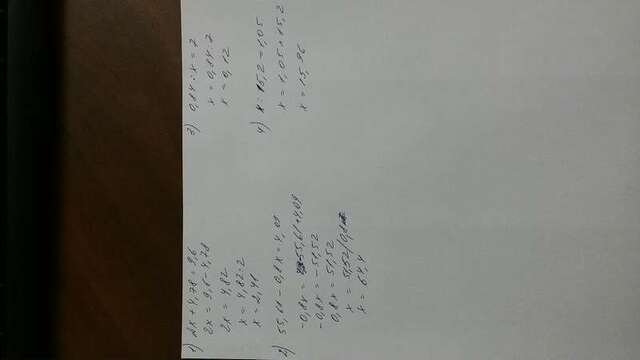 1) 2x + 4,78 = 9,6
2x = 9,6 - 4,78
2x = 4,82
x = 4,82 : 2
x = 2,41
2) 55,61 - 0,8x = 4,09
-0,8x = -55,61 + 4,09
-0,8x = -51,52
0,8x = 51,52
x = 51,52/0,8
x = 64,4
3) 0,84 : x = 7
x = 0,84 : 7
x = 0,12
4) x : 15,2 = 1,05
x = 1,05 * 15,2
x = 15,96